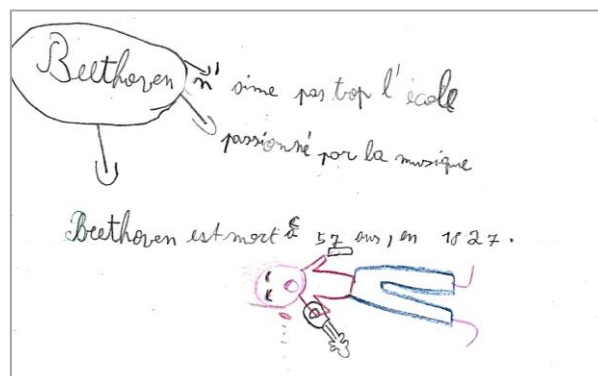 Beethoven
n'aime pas trop l'école
passionné par la musique
Beethoven est mort à 57 ans, en 1827.